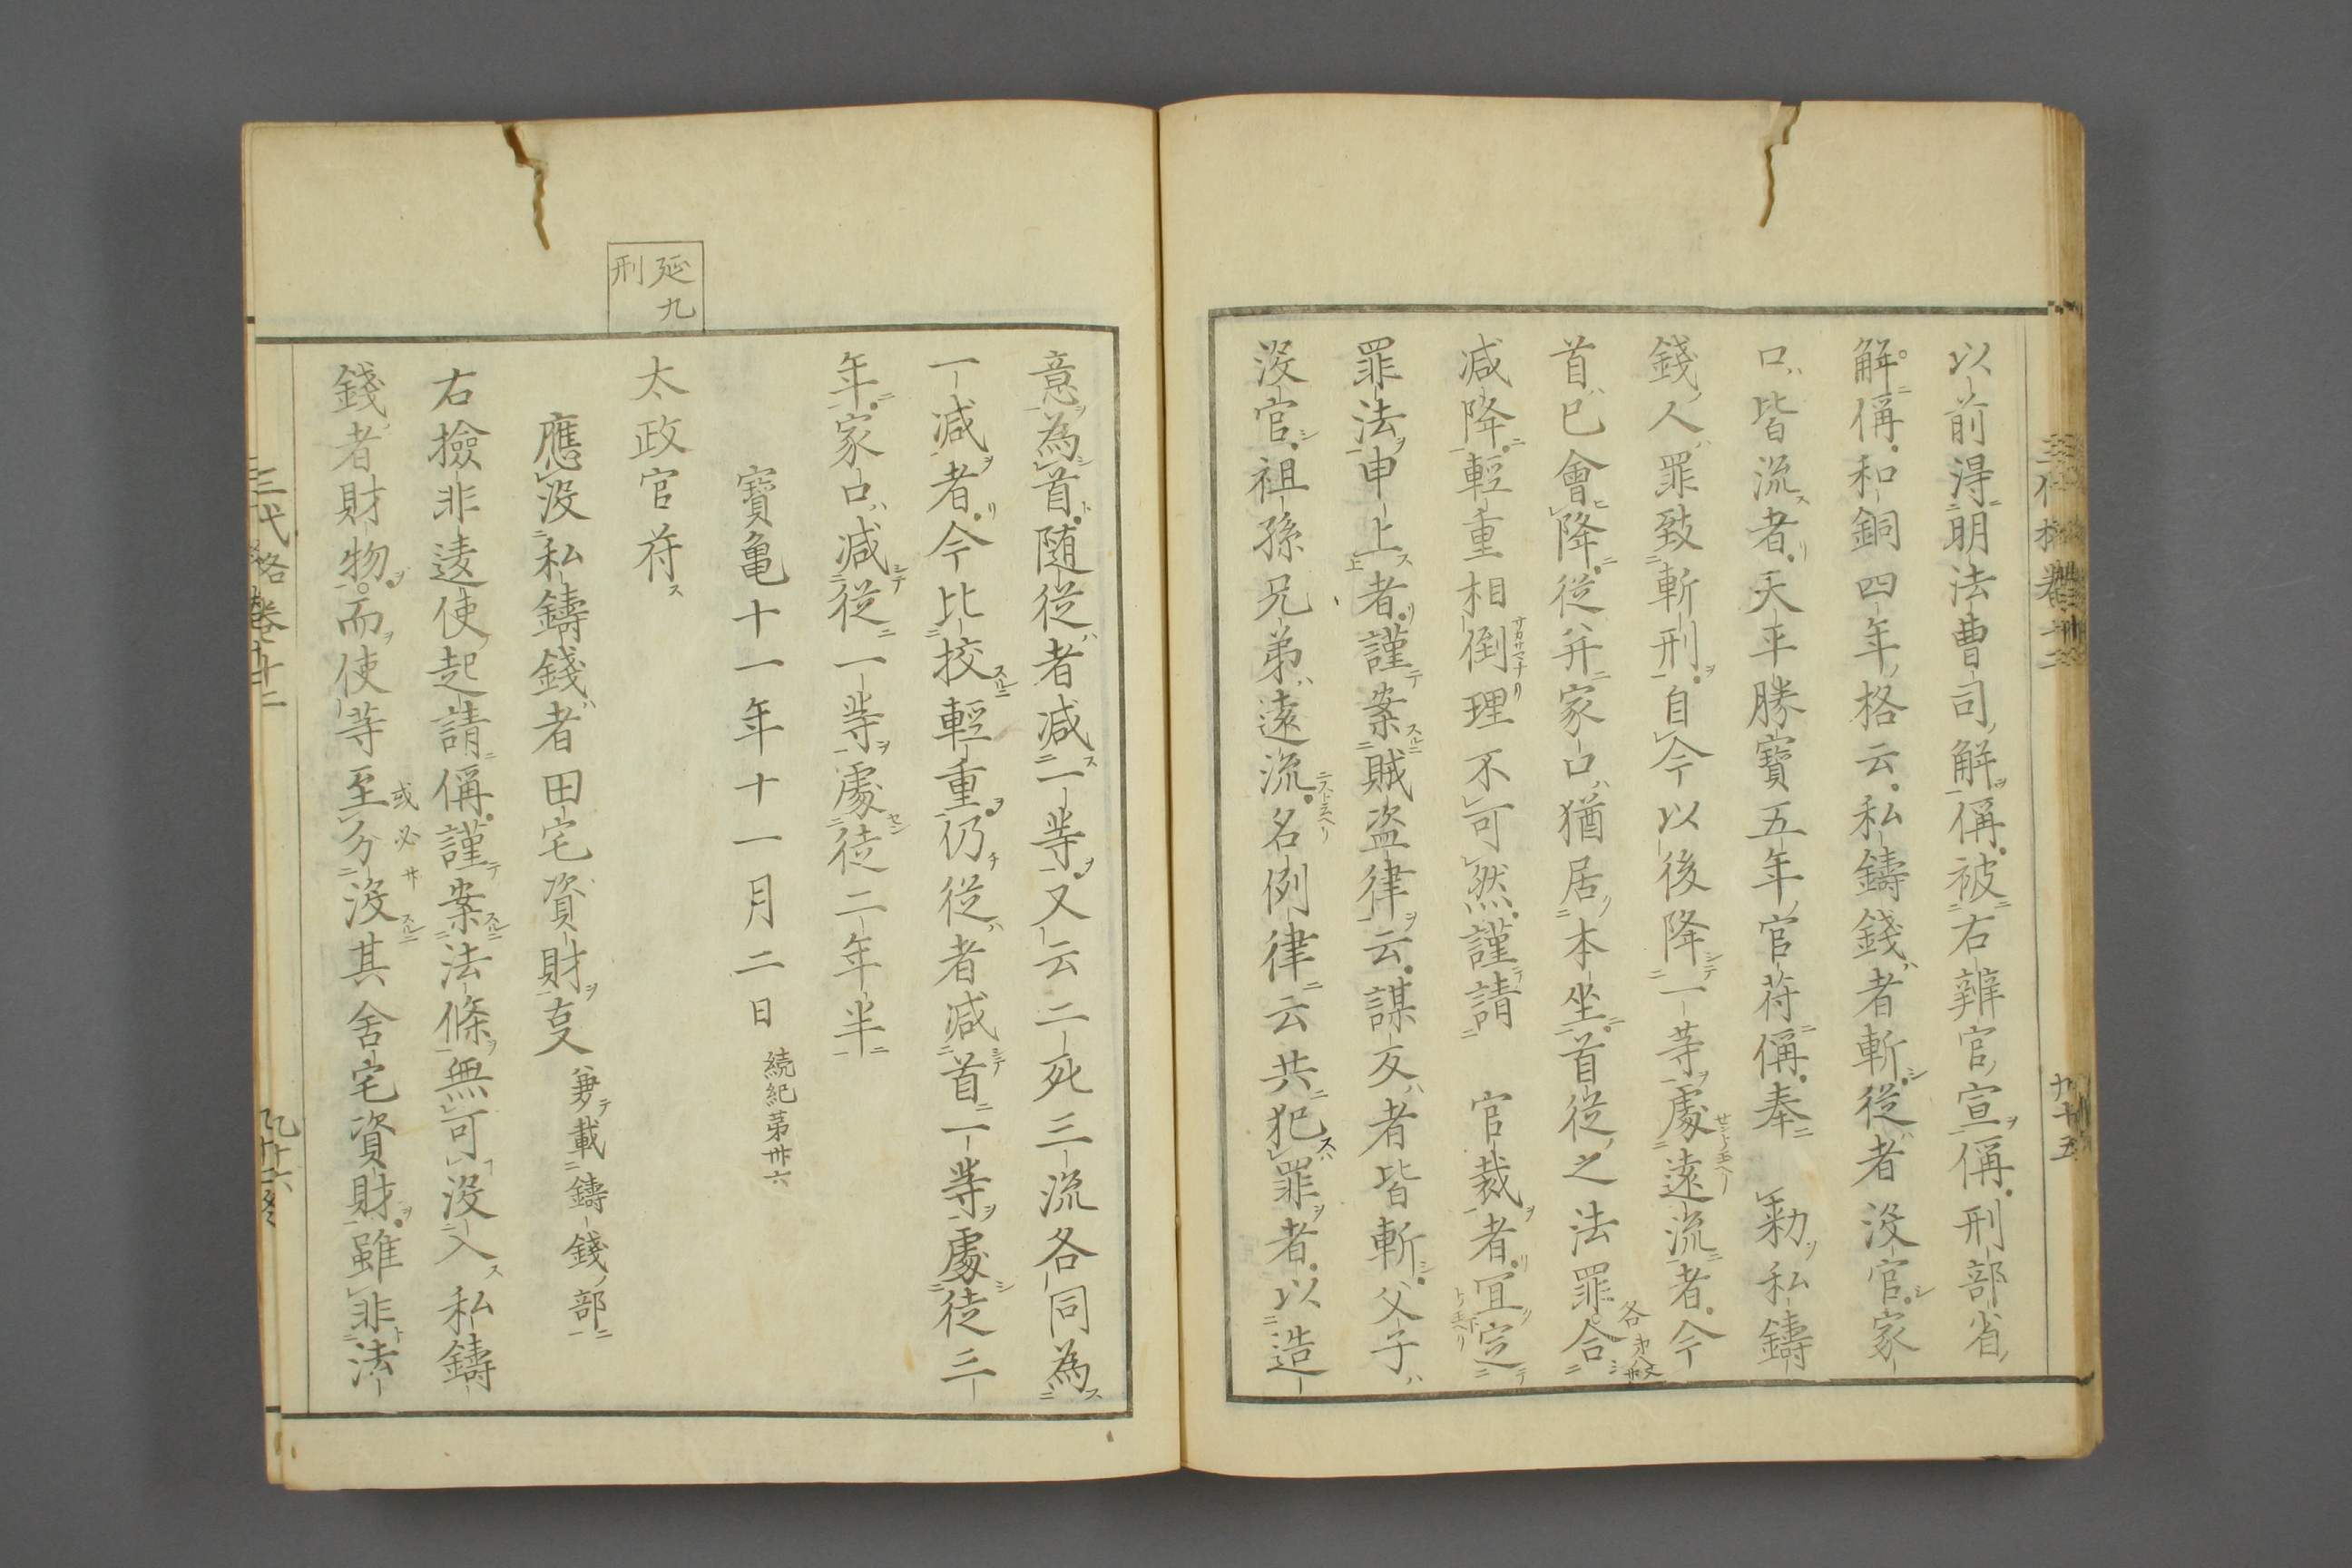 以前得明法曹司解偁被右辨官宣偁刑部省
解偁和銅四年格云私鑄錢者斬從者沒官家
口皆流者天平勝寶五年官苻偁奉　勅私鑄
錢人罪致斬刑自今以後降一等處遠流者今
首已會降從并家口猶居本坐首從之法罪合
減降輕重相倒理不可然謹請　官裁者宜定
罪法申上者謹案賊盜律云謀反者皆斬父子
沒官祖孫兄弟遠流名例律云共犯罪者以造
意為首隨從者減一等又云二死三流各同為
一減者今比挍輕重仍從者減首一等處徒三
年家口減從一等處徒二年半
寶龜十一年十一月二日　続紀第卅六
延九
刑
太政官苻
應沒私鑄錢者田宅資財事　兼載鑄錢部
右撿非違使起請偁謹案法條無可沒入私鑄
錢者財物而使等至分沒其舍宅資財雖非法